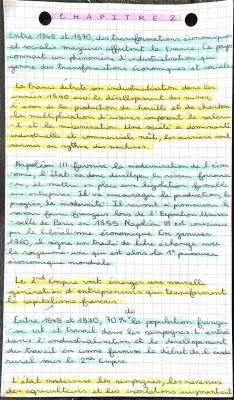 CHAPITRE 2
Entre 1848 et 1870, des transformations économiques
et sociales majeures affectent la France. Ce pays
connait un phénomène d'industrialisation qui
génère des transformations économiques et sociales
La France débute son industrialisation dans les
années 1840 avec le développement des mines,
l'essor de la production de houille et de charbon
La multiplication d'usines imposent le salariat
et la mécanisation. Une société à dominante
industrielle et commerciale naît, les ouvriers sont
soumis au rythme des machines.
Napoléon III favorise la modernisation de l'écon
omie, l'état va donc développer le réseau ferroviai
re, et mettre en place une législation favorable
aux entreprises. Il va encourager la production, le
progrès, la modernité. Il réussit à promouvoir le
savoir faire français lors de l'Exposition Univer
selle de Paris en 1855. Napoléon III est convaincu
par le libéralisme économique. En janvier
1860, il signe un traité de libre échange avec
le royaume-uni qui est alors la 1ère puissance
économique mondiale
Le 2nd Empire voit émerger une nouvelle
génération d'entrepreneurs qui transforment
le capitalisme français
Entre 1848 et 1870, 70% de la population françai-
se vit et travail dans les campagnes. L'entrée
dans l'industrialisation et le développement
du travail en usine favorise le début de l'exode
rural sous le 2nd Empire
L'état modernise les campagnes, les revenus
des agriculteurs et les exportations augmentent